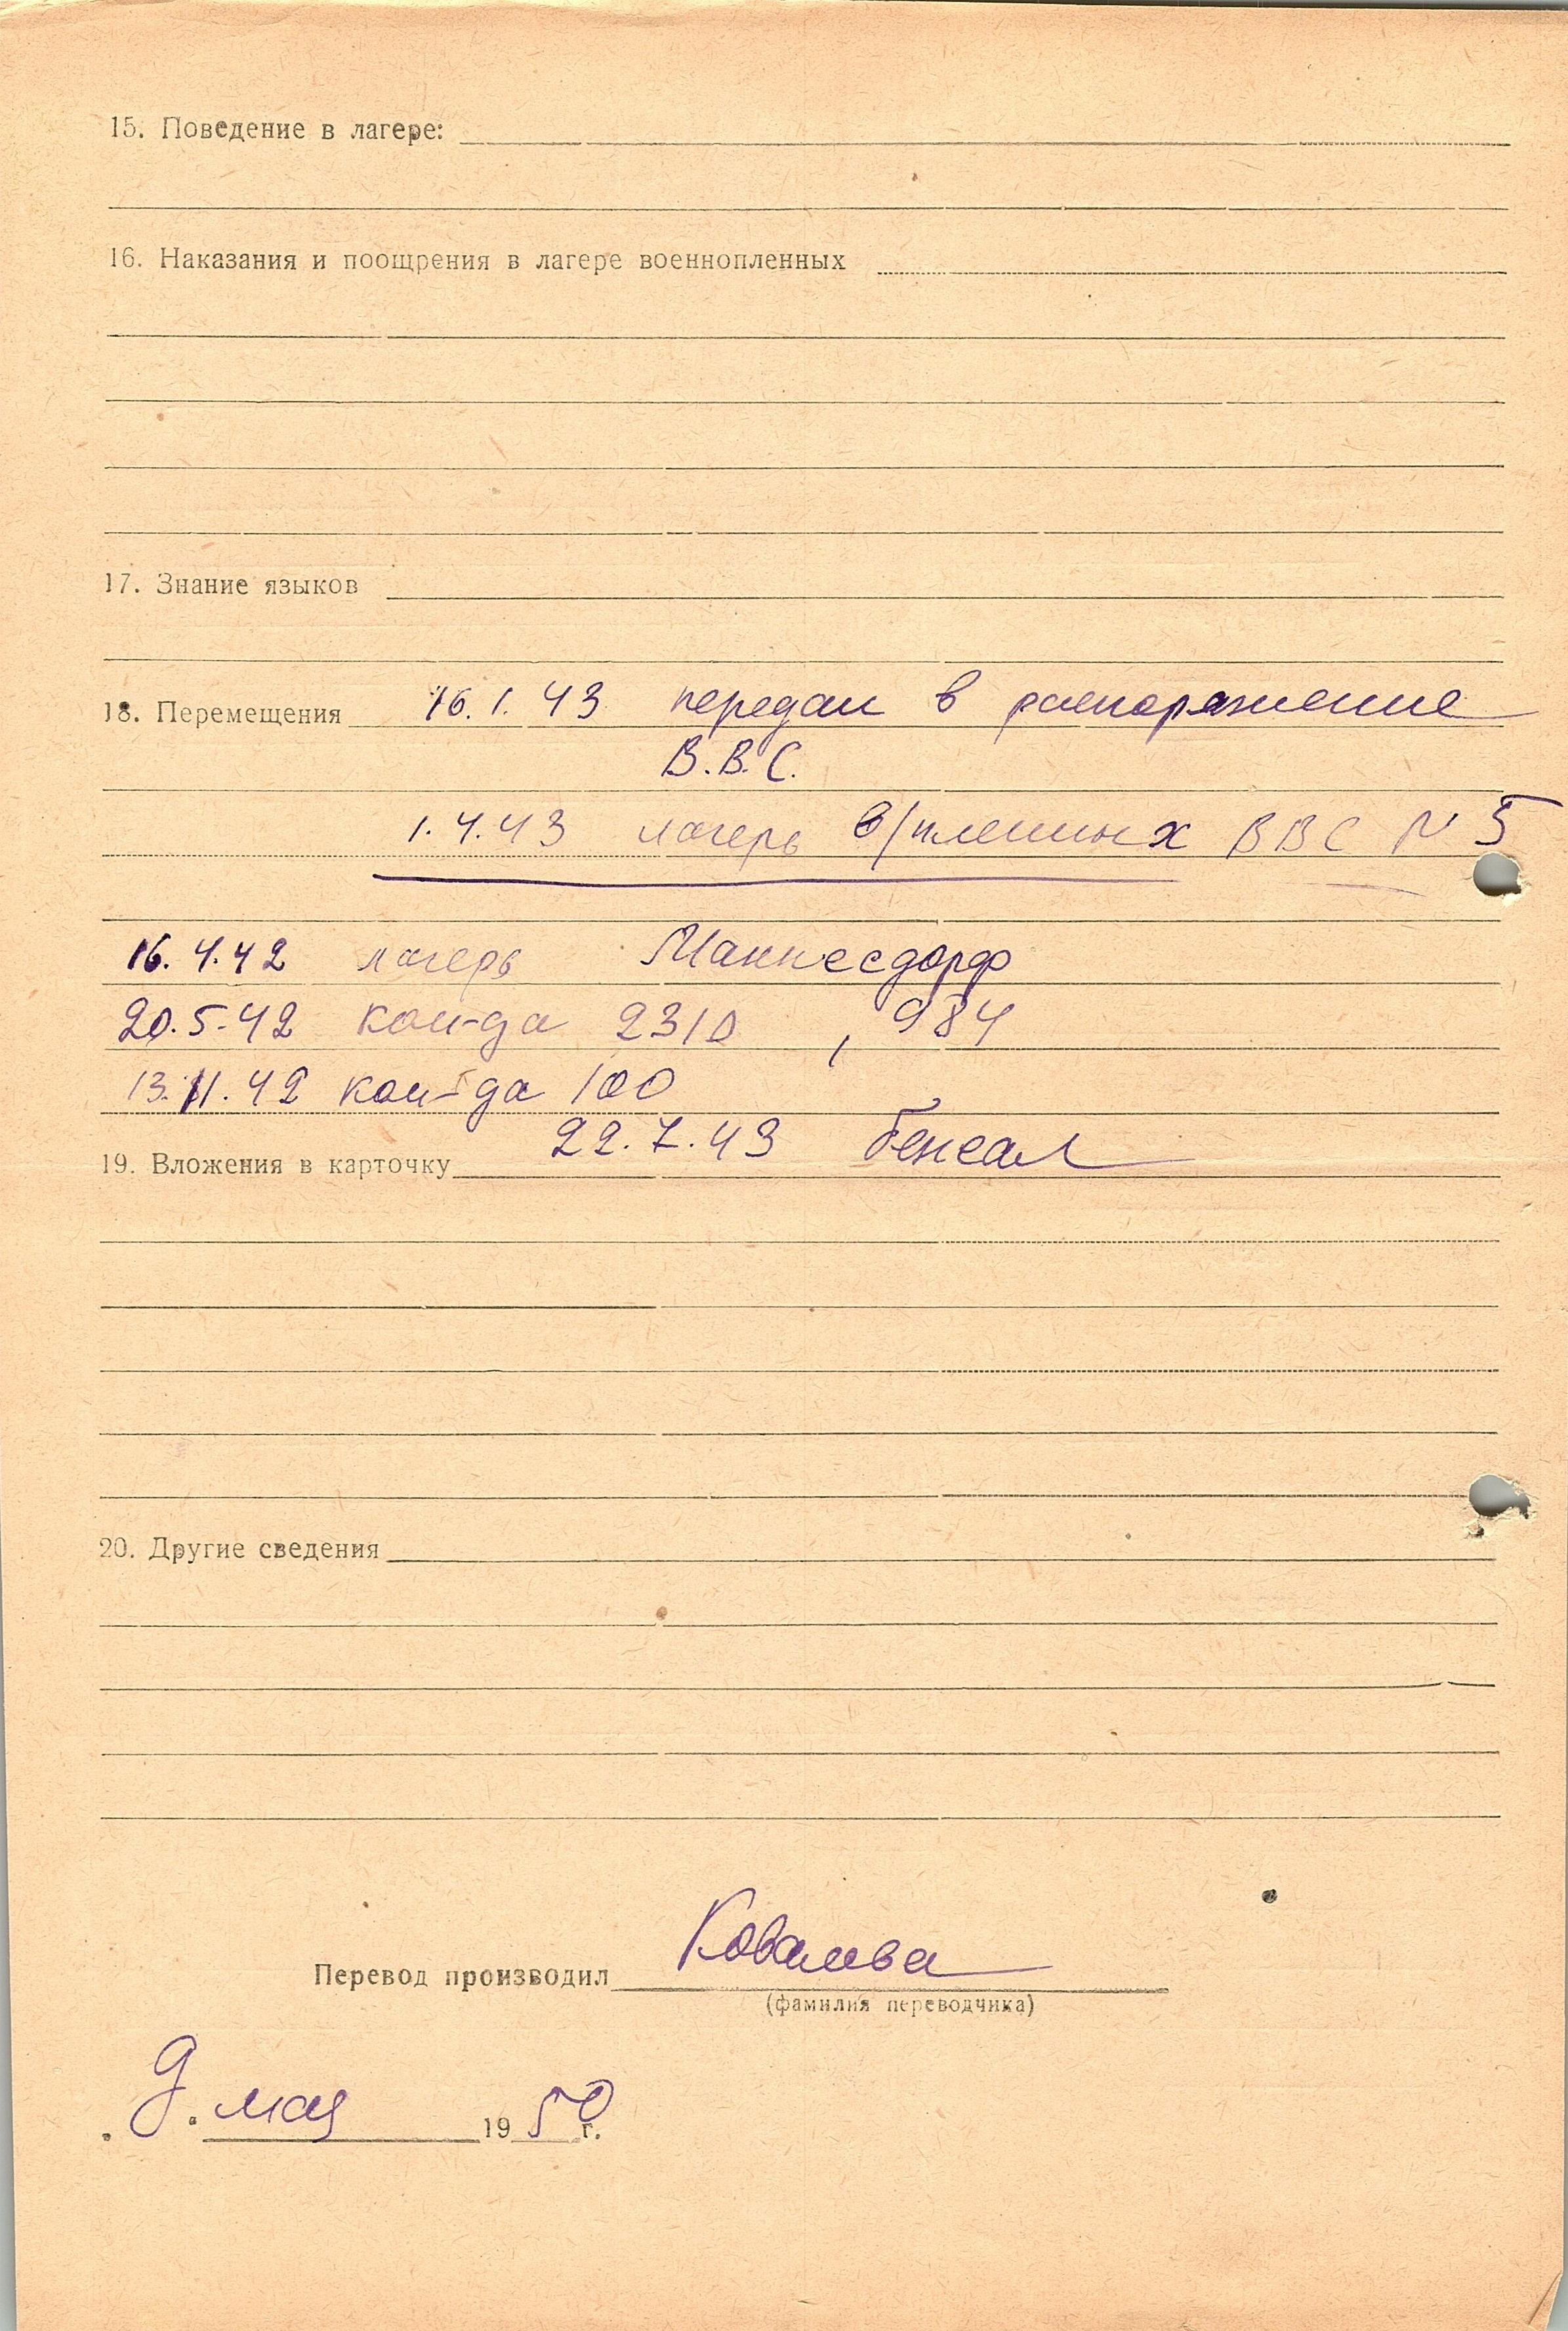 15. Поведение в лагере:
16. Наказания и поощрения в лагере военнопленных
17. Знание языков
18. Перемещения 16.1.43 передан в распоряжение
В.В.С.
1.4.43 лагерь в/пленных ВВС N 5
16.4.42 лагерь Маннесдорф
20.5.42 ком-да 2310, 984
13.11.42 ком-да 100
22.7.43
19. Вложения в карточку
20. Другие сведения
Перевод производил Ковалева
(фамилия переводчика)
" 9 " мая 1950 г.